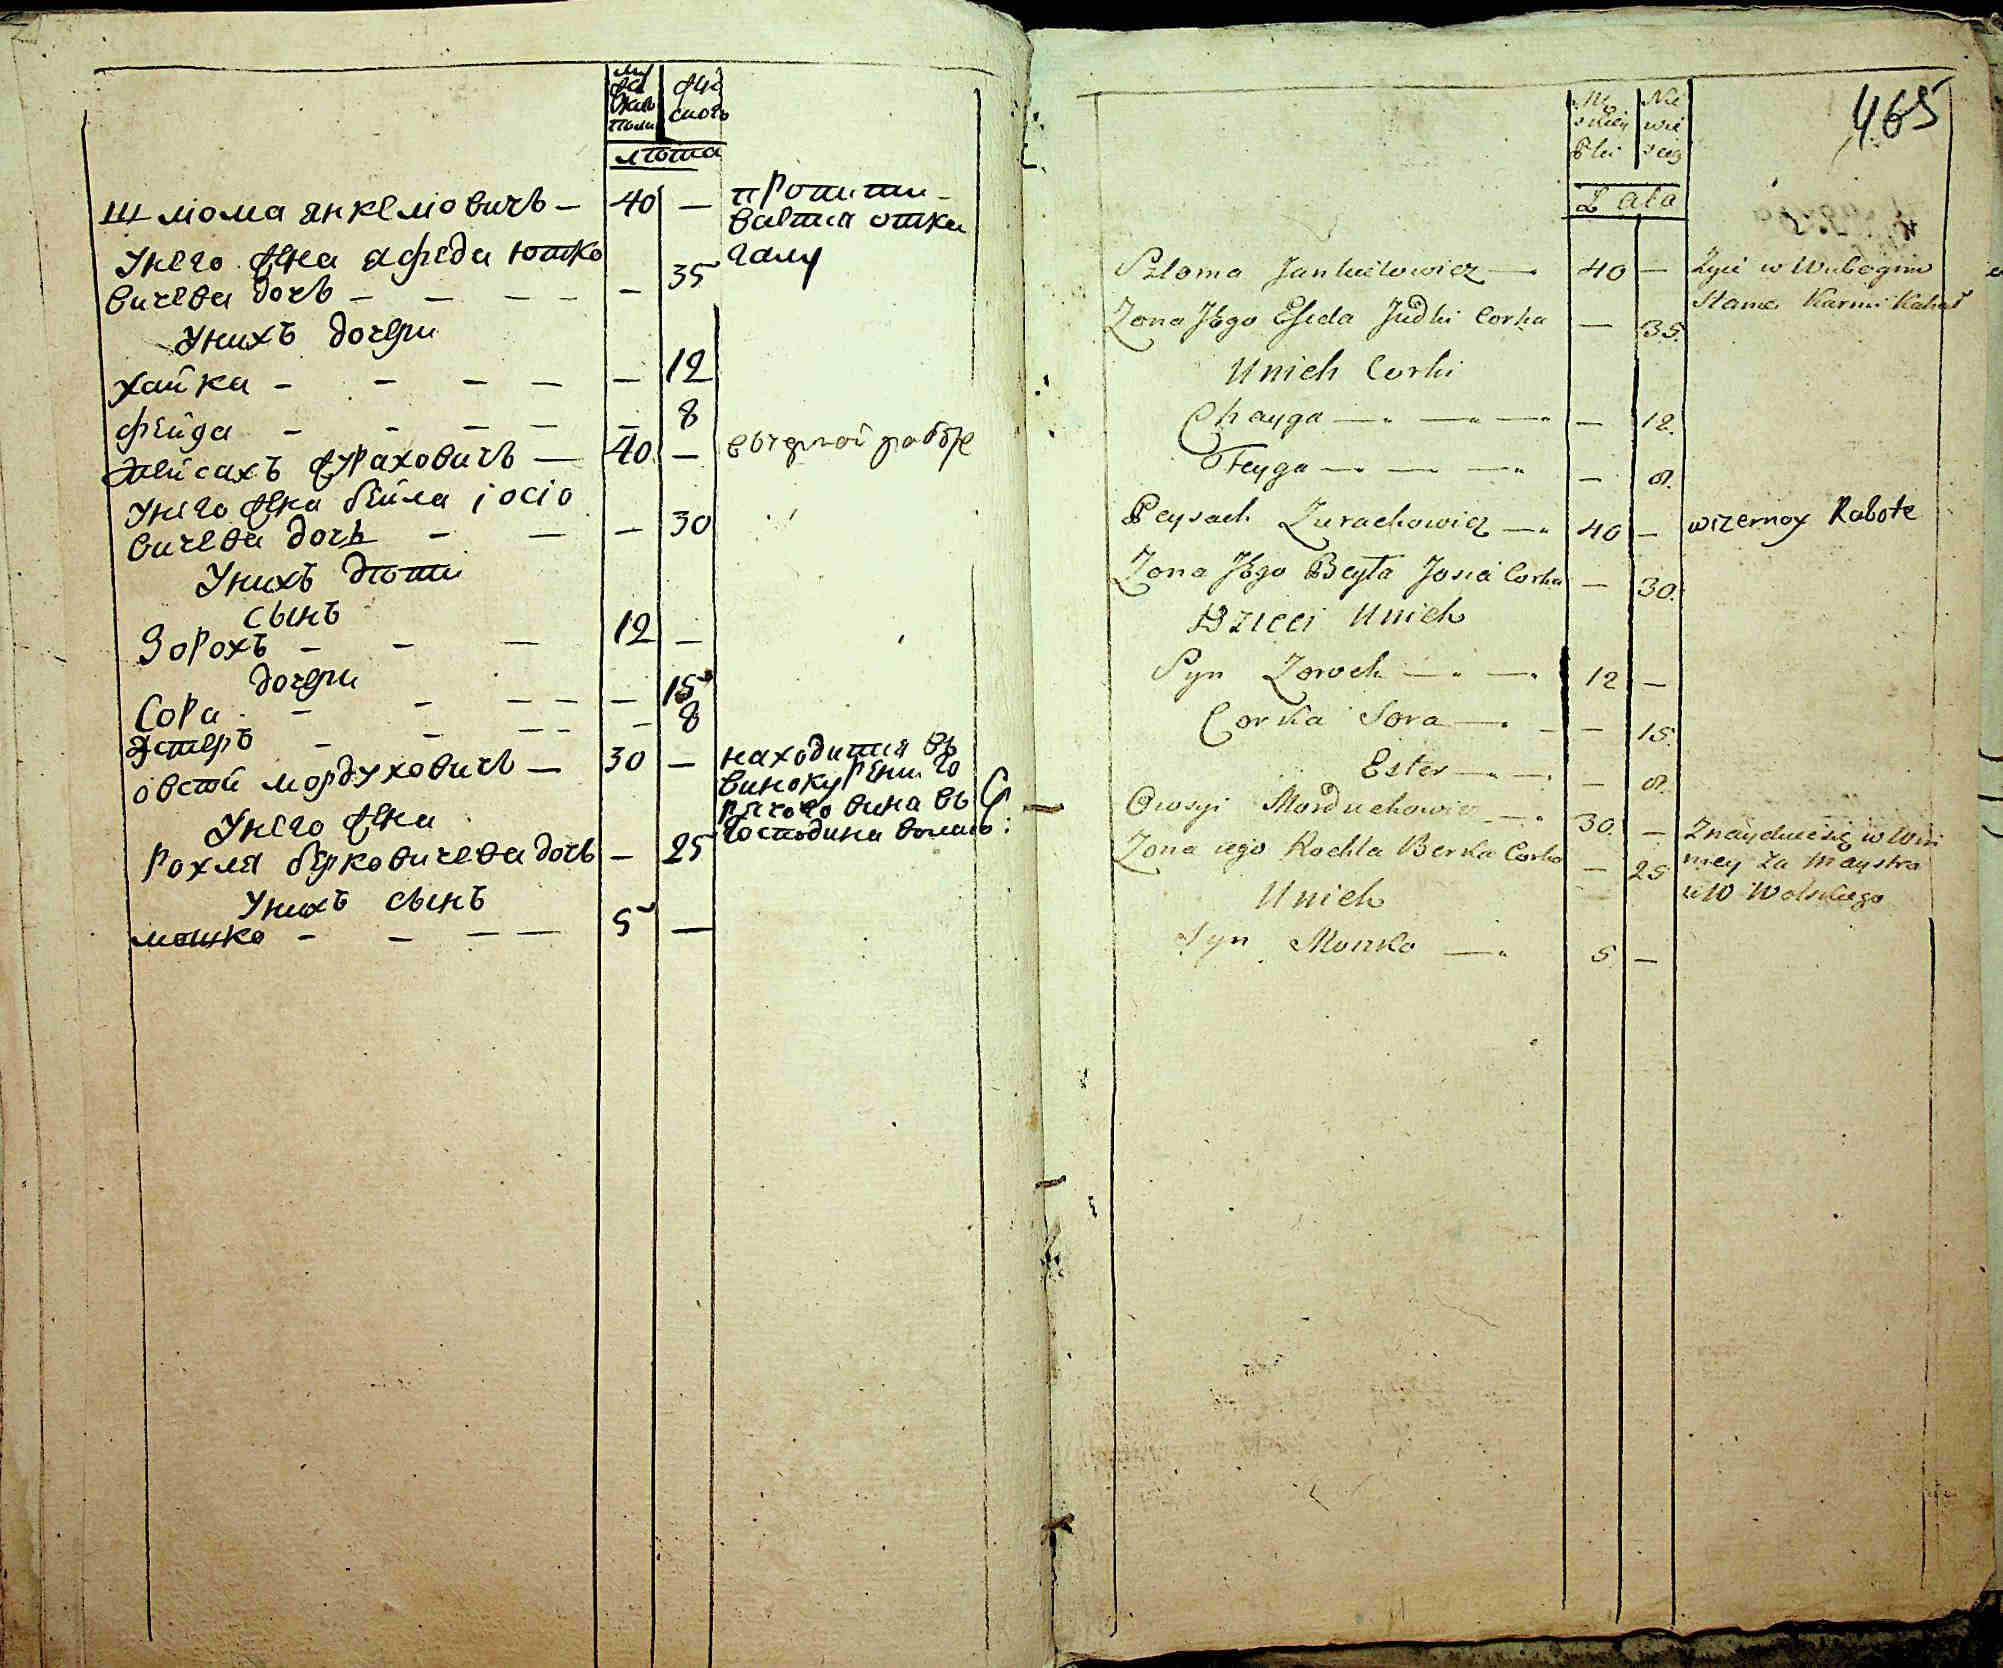 му
жеска
полу
жен
скога
лѣта
Шлiома янкелiовичъ — 40 —
пропити-
вается отка
галу
Унего жена ефеда юдко
вичева дочь — — — — — 35
Унихъ дочери
хайка — — — — — 12
фейга — — — — — 8
пейсахъ зураховичъ — 40 —
вчерной работе
Унего жена бейла iосiо
вичева дочь — — — 30
Унихъ дѣти
сынъ
Зорохъ — — — 12 —
дочери
Сора — — — — — 15
Эстеръ — — — — — 8
овсей мордуховичъ — 30 —
находится въ
винокурени го
рячого вина въ
господина
Унего жена
Рохля берковичева дочь — 25
Унихъ сынъ
мошко — — — — 5 —
465
Mę
skiey
Płci
Nie
wie
scig
Lata
Szloma Jankielowicz — 40 —
Żyie w Wubogim
Stanie Karmi Kahał
Zona Jego Efieda Judki Corka — 35.
Unich Corki
Chayga — — — — 12.
Feyga — — — — 8.
Peysach Zurachowicz — 40 —
wczernoy Rabote
Zona Jego Beyła Josia Corka — 30.
Dzieci Unich
Syn Zoroch — — 12 —
Corka Sora — — — 15.
Ester — — — 8.
Owsyi Morduchowicz — 30. —
Znayduie się w Win
nicy Za Maystra
uW Wolskiego
Zona iego Rochla Berka Corka — 25
Unich
Syn Moszko — 5. —